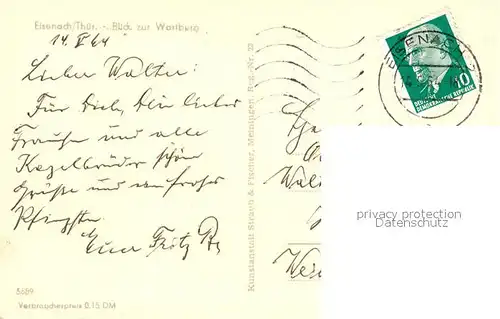 Eisenach/Thür. - Blick zur Wartburg
14. V 64
Lieber Walter!
Für Dich, Dein liebes
Frauchen und alle
Kegelbrüder schöne
Grüße und ein frohes
Pfingsten
Euer Fritz
5689
Verbraucherpreis 0.15 DM
Kunstanstalt Straub & Fischer, Meiningen
EISENACH
10
DEUTSCHE
DEMOKRATISCHE REPUBLIK
privacy protection
Datenschutz